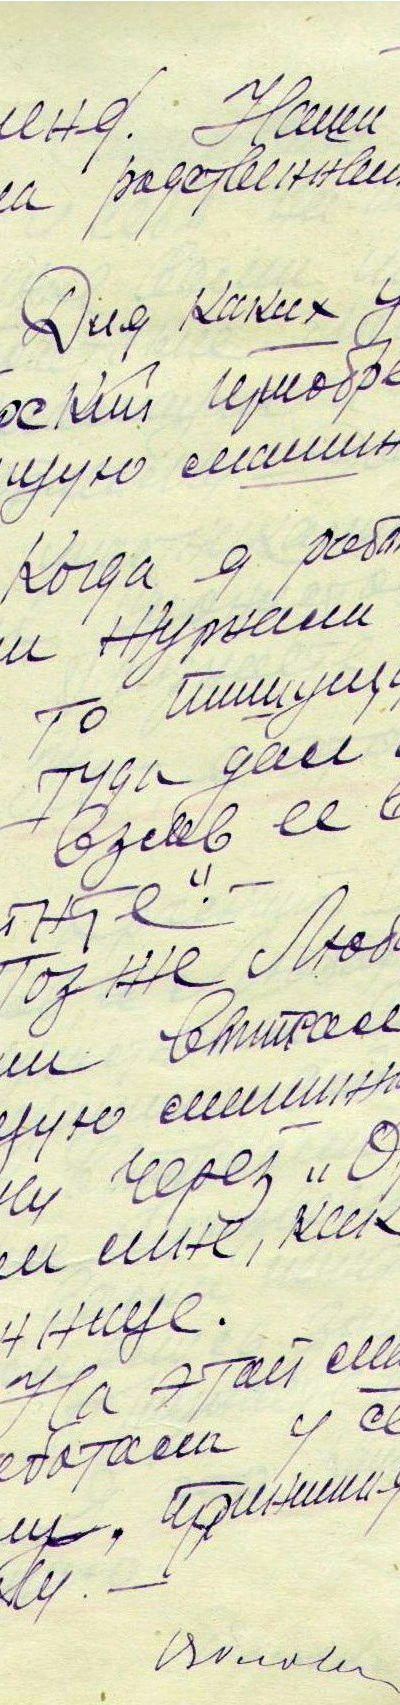 меня. Наши
на родственни
Для каких у
ский приобре
щую машин
Когда я рабо
ли журнали
то пишущу
туда дал
взяв ее в
нте". –
Позже Люб
ли выписал
щую машинк
ну через "О
ли мне, как
ннице.
На этой ма
работала у се
му, принимая
ку. –